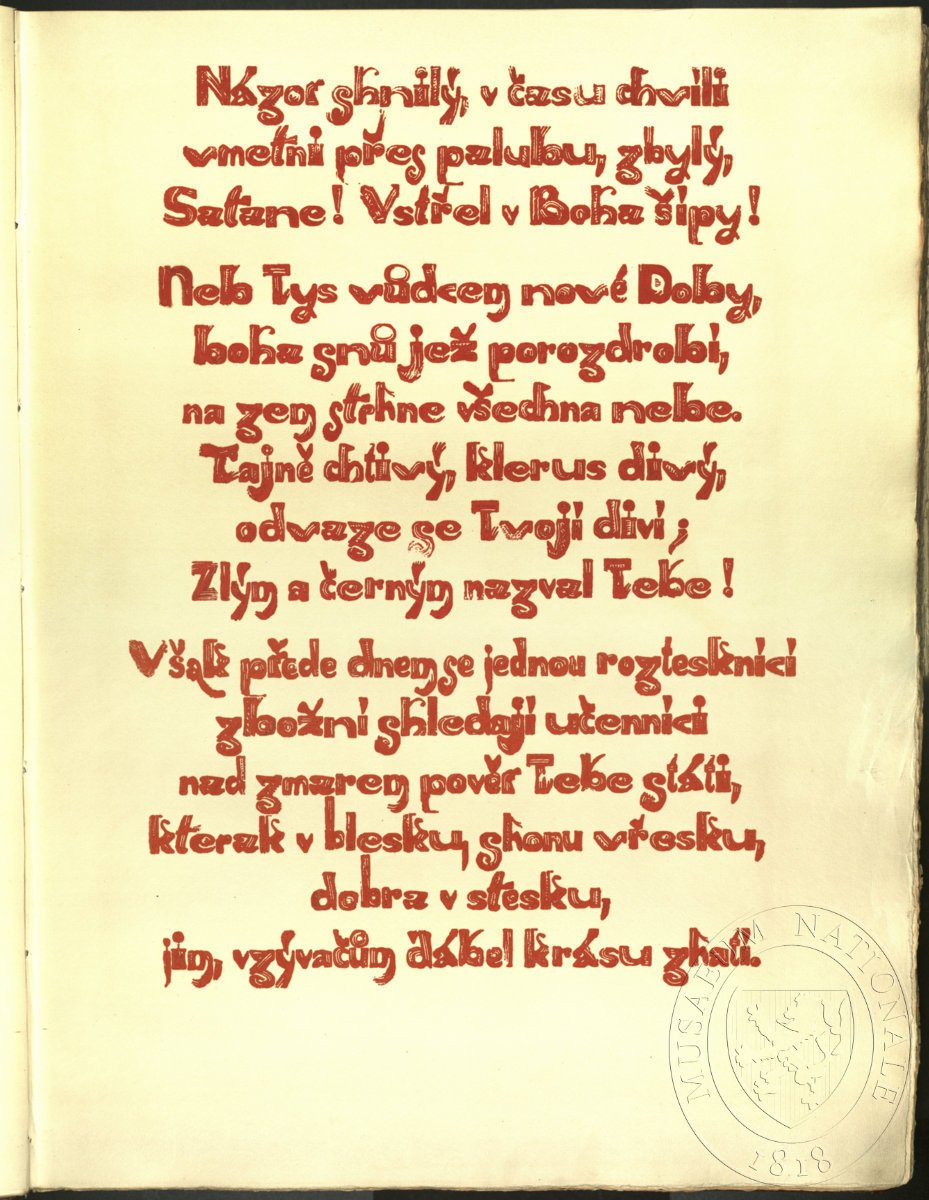 Názor shnilý, v času chvíli
vmetni přes palubu, zbylý,
Satane! Vstřel v Boha šípy!
Neb Tys vůdcem nové Doby,
boha snů jež porozdrobí,
na zem strhne všechna nebe.
Tajně chtivý, klerus divý,
odvaze se Tvojí diví;
Zlým a černým nazval Tebe!
Však přede dnem se jednou rozteskníci
zbožní shledají učenníci
nad zmarem pověr Tebe státi,
kterak v blesku, shonu vřesku,
dobra v stesku,
jim, vzývačům ďábel krásu zhatí.
MUSAEUM NATIONALE
1818